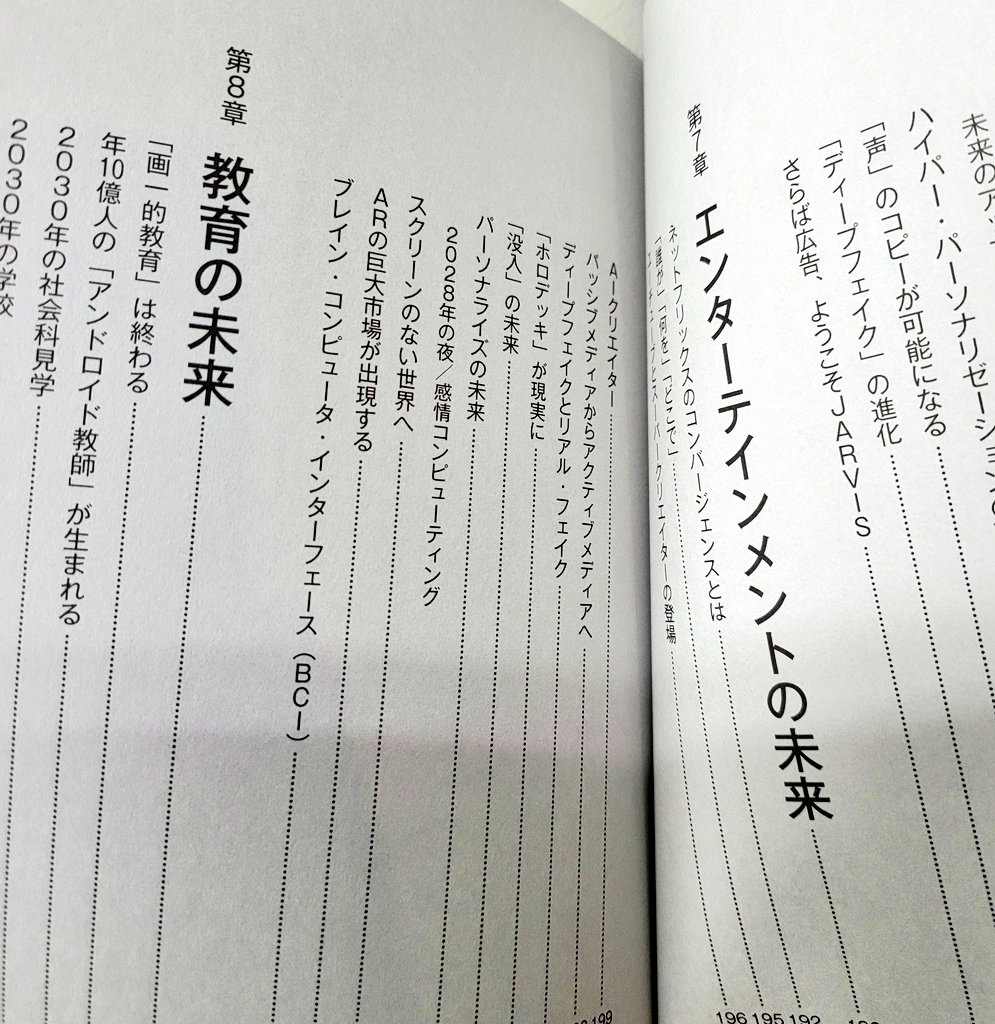 未来の
ハイパー・パーソナリゼーションの
「声」のコピーが可能になる
「ディープフェイク」の進化
さらば広告、ようこそJARVIS
第7章 エンターテインメントの未来
192
ネットフリックスのコンバージェンスとは
195
「誰が」「何を」「どこで」
196
スーパークリエイターの登場
AークリエイターI
199
パッシブメディアからアクティブメディアへ
ディープフェイクとリアル・フェイク
「ホロデッキ」が現実に
「没入」の未来
パーソナライズの未来
2028年の夜／感情コンピューティング
スクリーンのない世界へ
ARの巨大市場が出現する
ブレイン・コンピュータ・インターフェース（BCI）
第8章 教育の未来
「画一的教育」は終わる
年10億人の「アンドロイド教師」が生まれる
2030年の社会科見学
2030年の学校